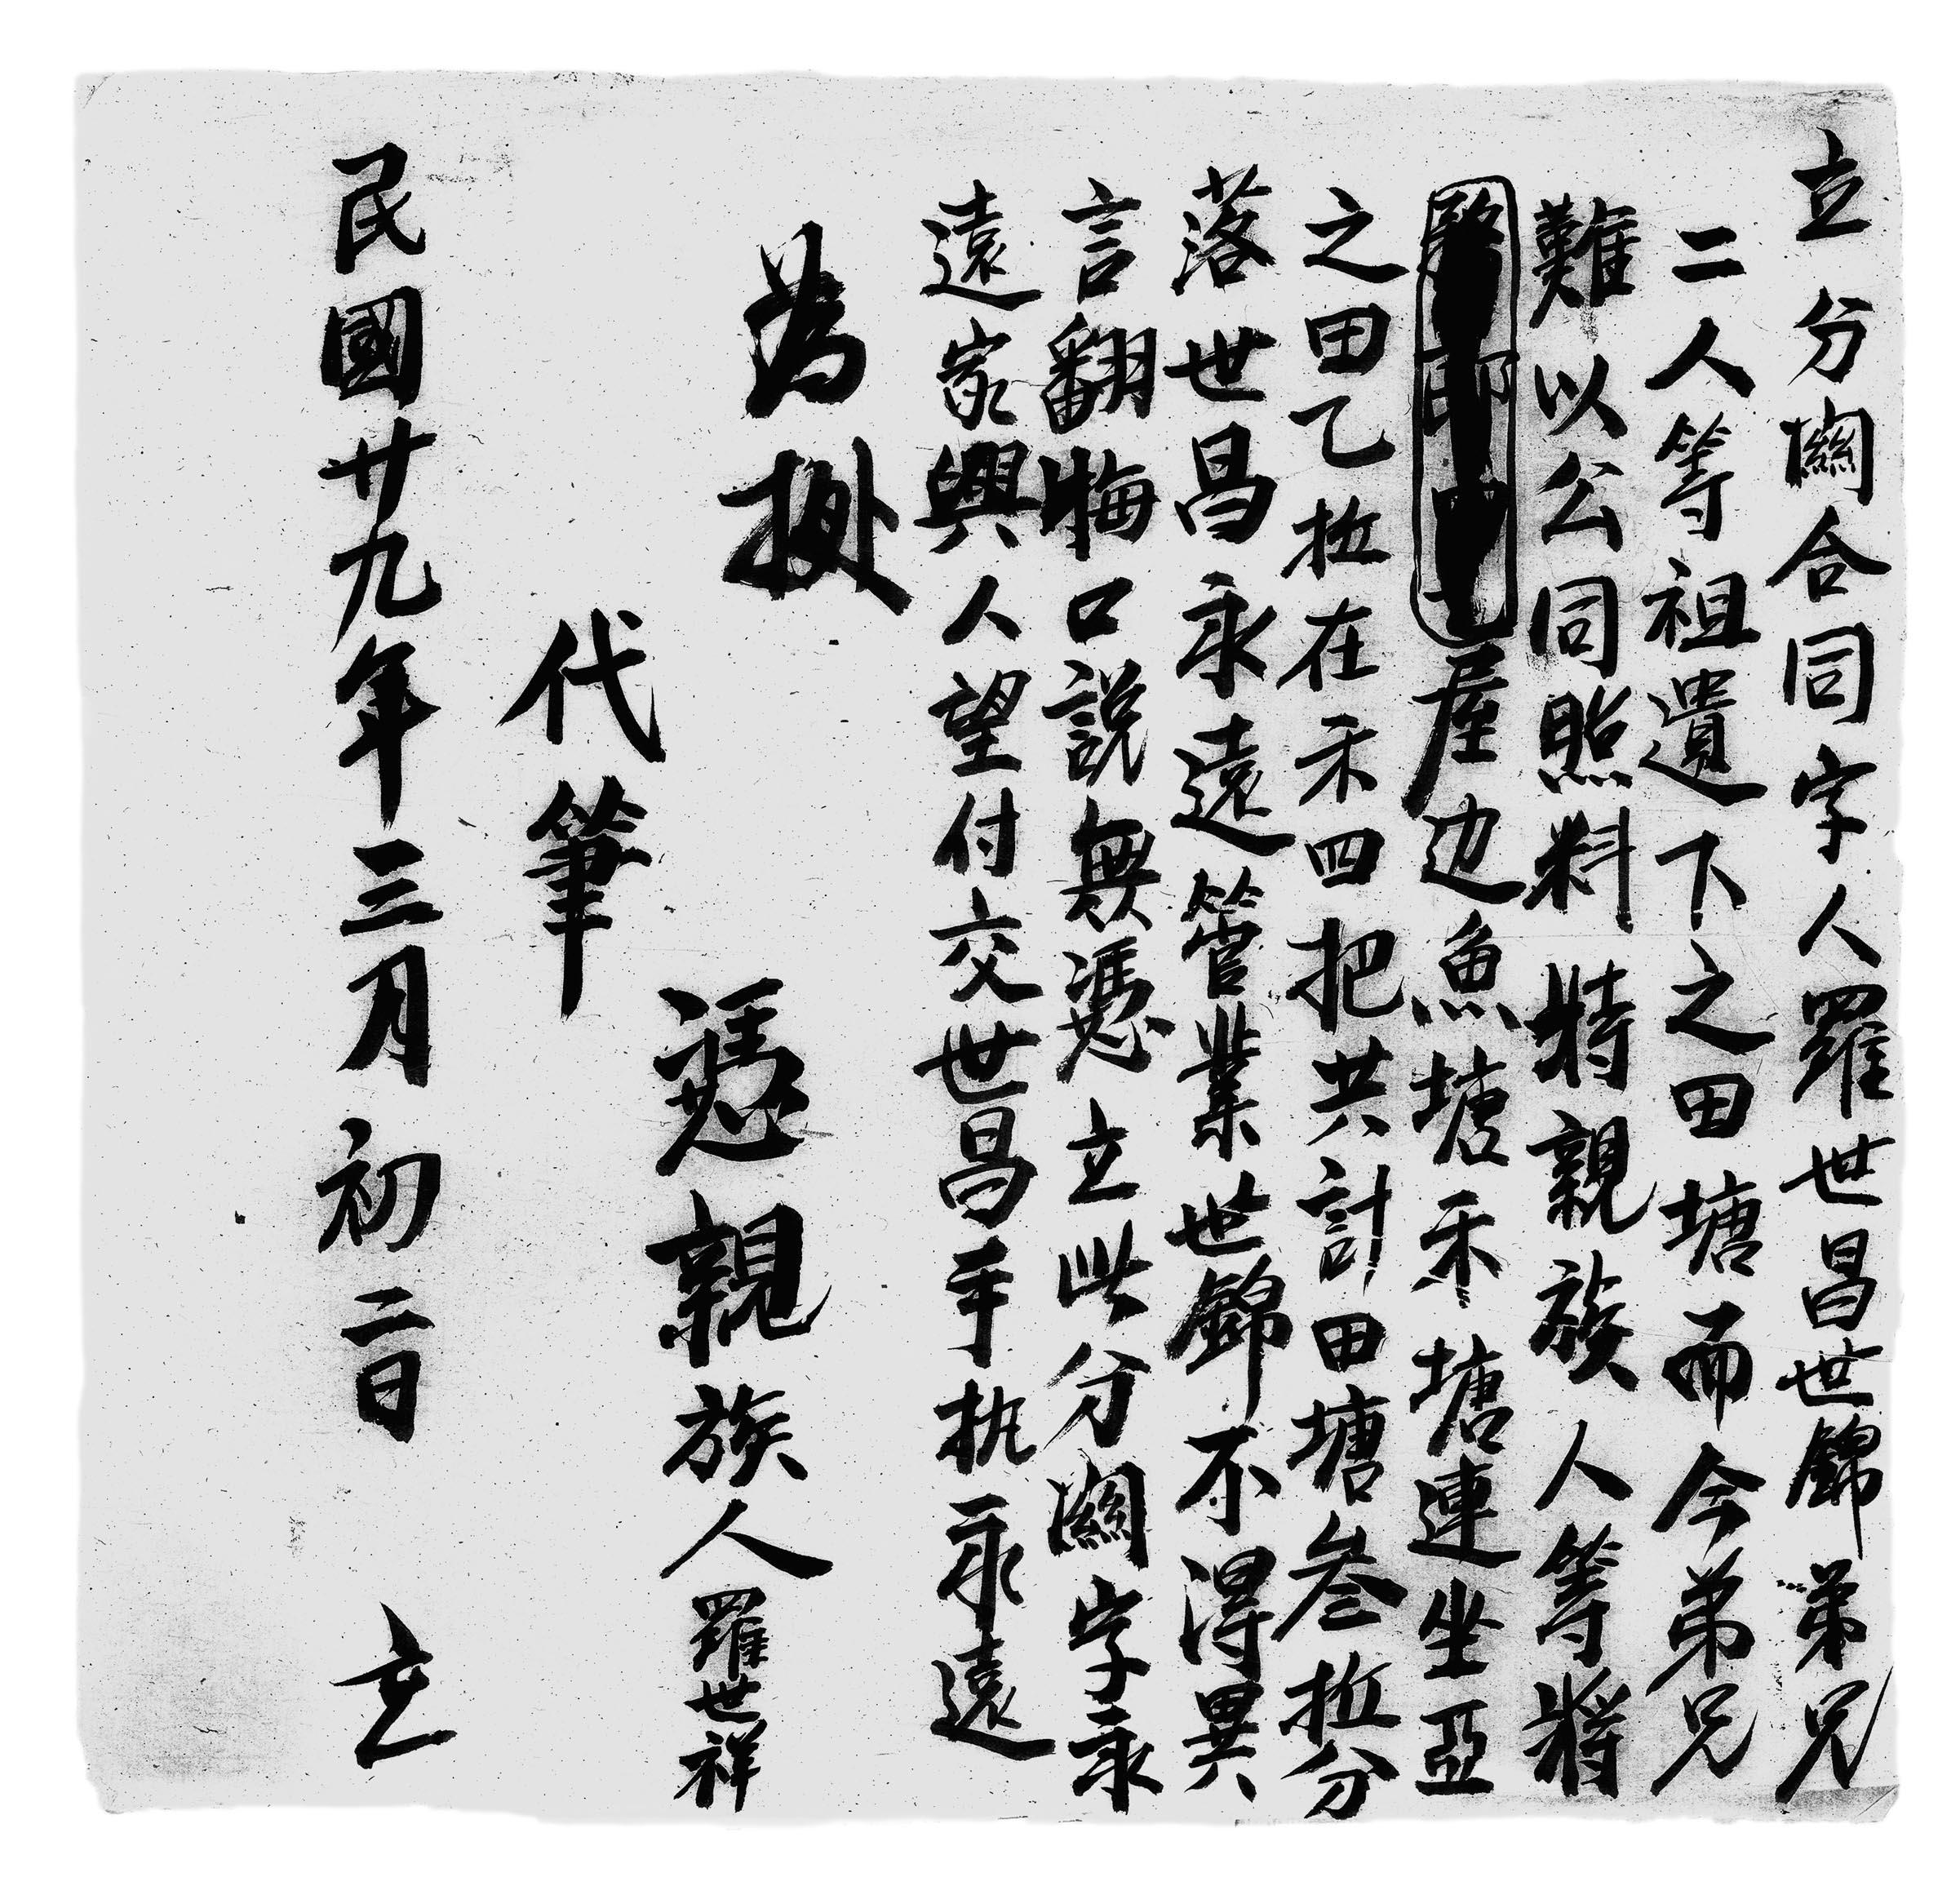 立分関合同字人羅世昌世錦弟兄
二人等祖遺下之田塘而今弟兄
難以公同照料特親族人等將
屋边魚塘禾塘連坐亞
之田乙坵在禾四把共計田塘叁坵分
落世昌永遠管業世錦不得異
言翻悔口説無憑立此分関字永
遠家興人望付交世昌手执永遠
為據
憑親族人羅世祥
代筆
民國廿九年三月初二日 立